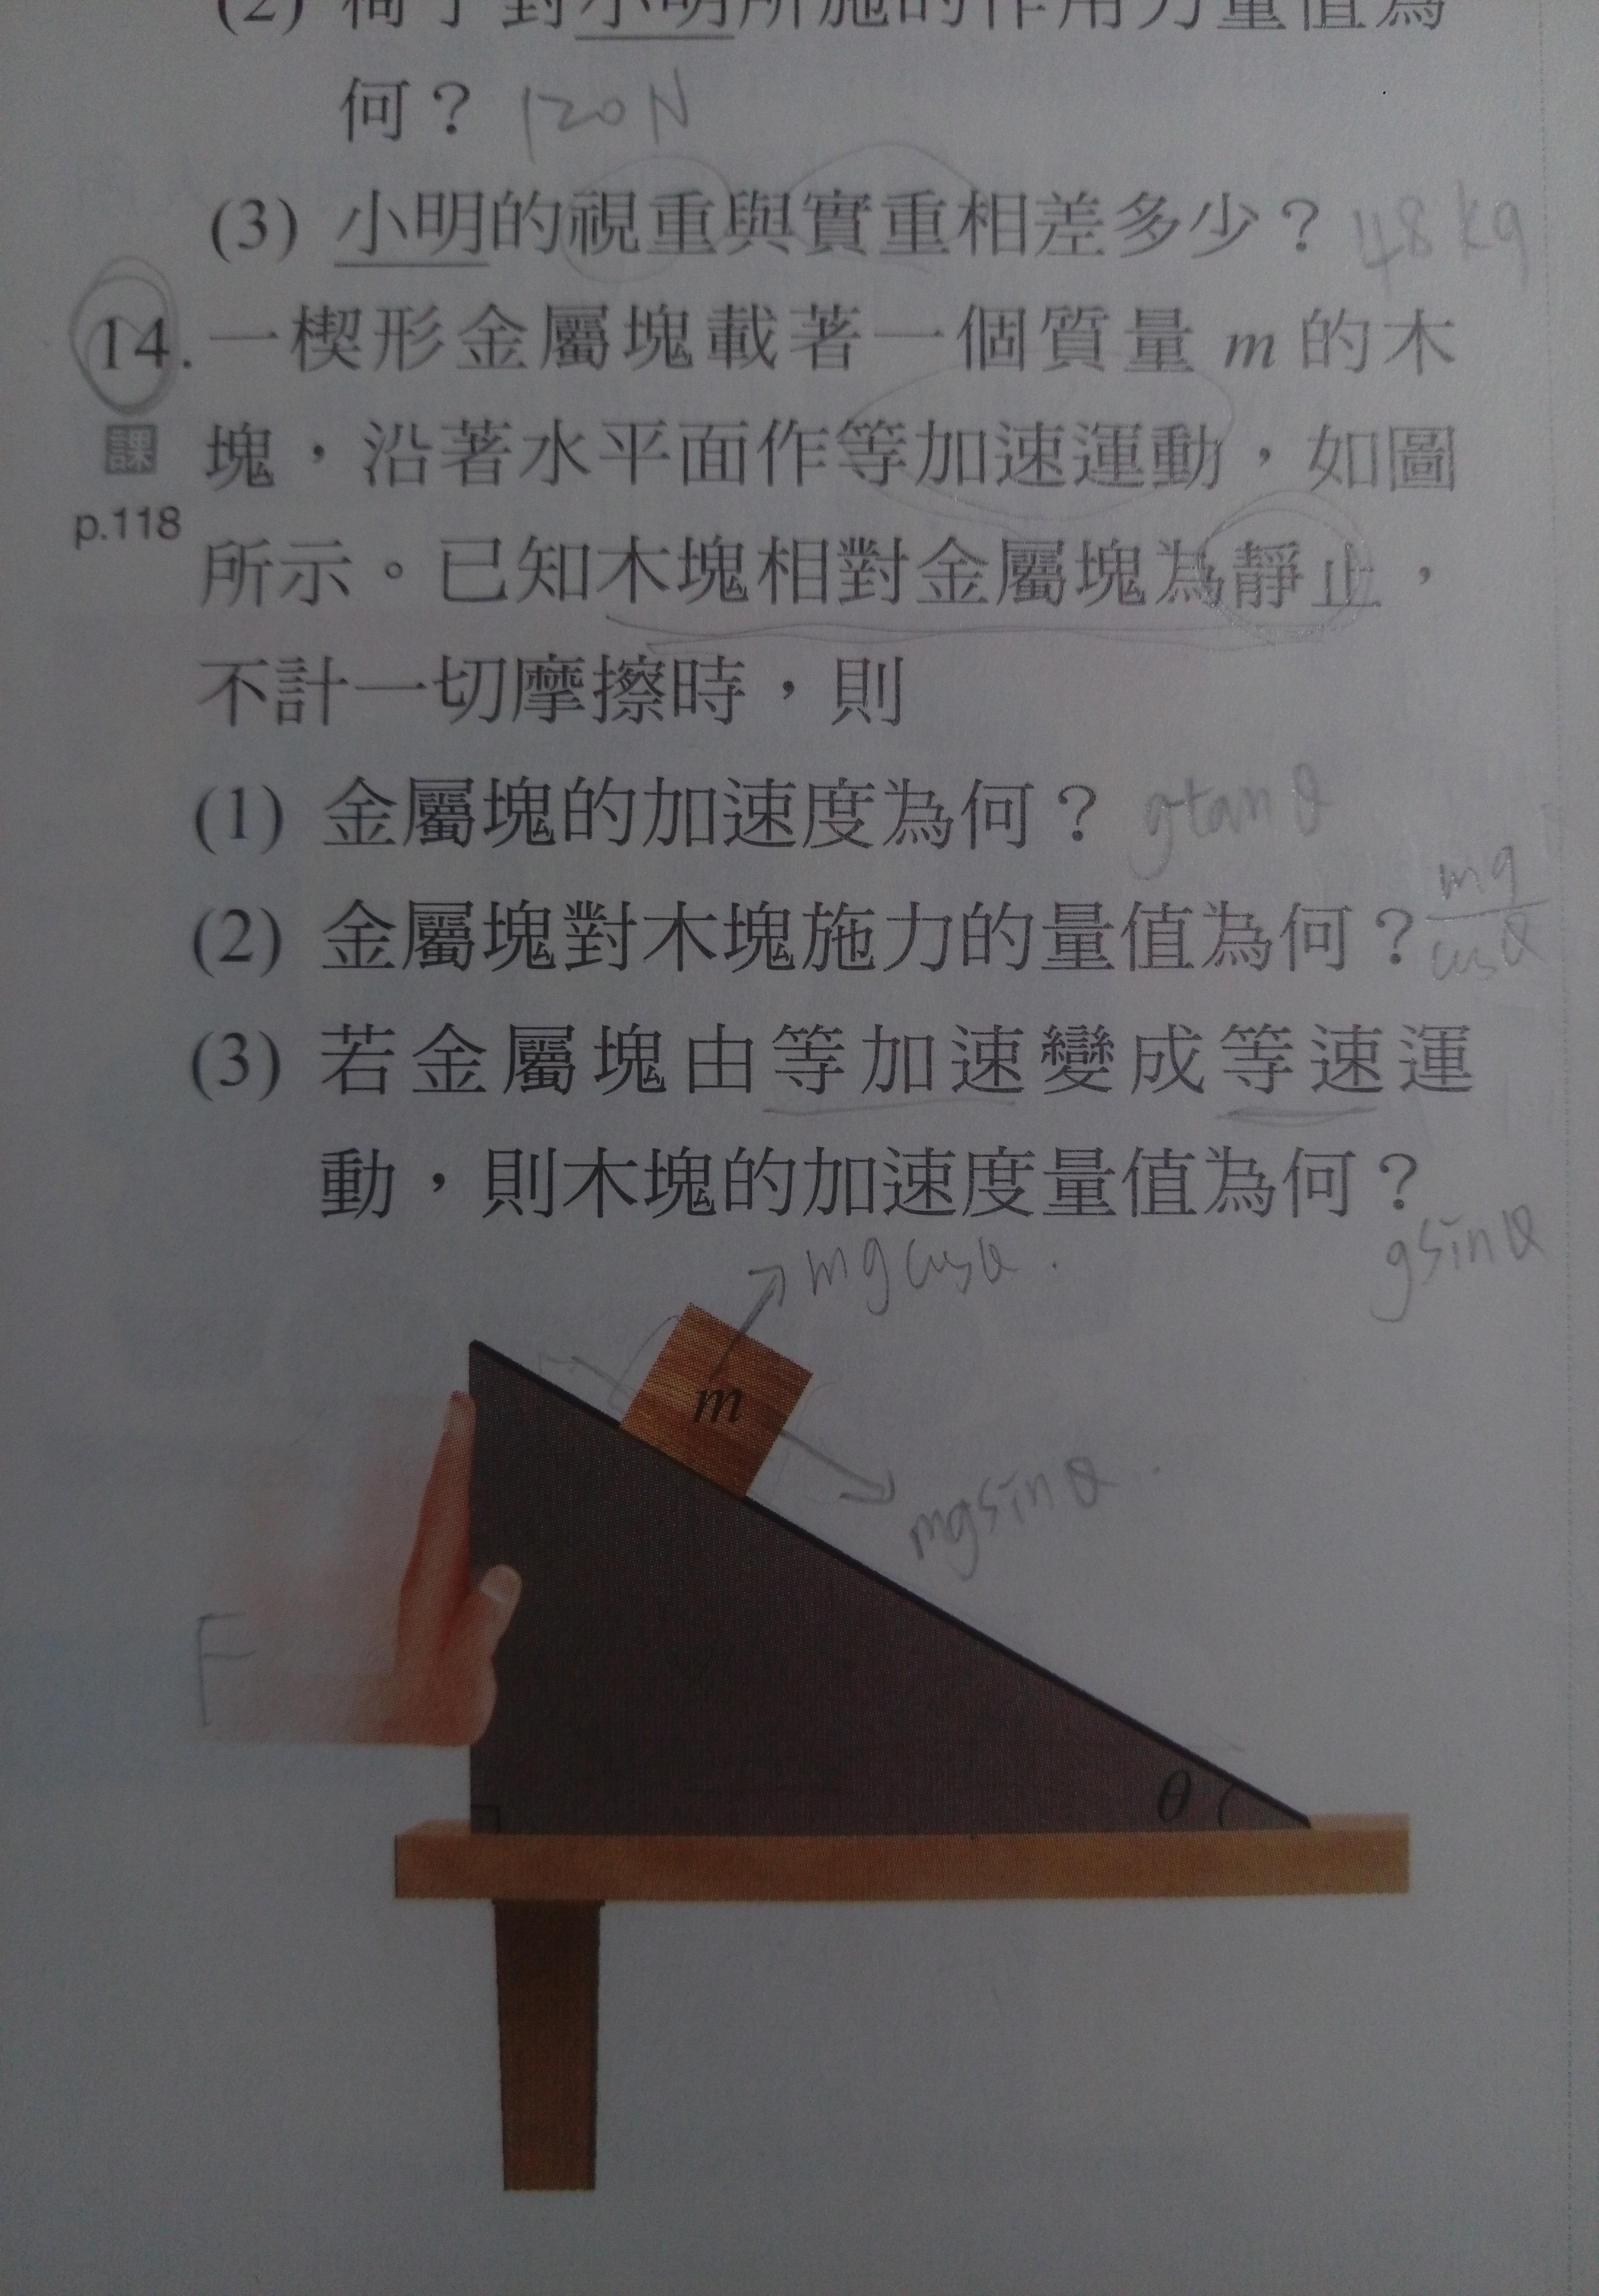 (2) 椅子對小明所施的作用力量值為
何？ 120N
(3) 小明的視重與實重相差多少？ 48kg
14. 一楔形金屬塊載著一個質量 m 的木
課 塊，沿著水平面作等加速運動，如圖
p.118 所示。已知木塊相對金屬塊為靜止，
不計一切摩擦時，則
(1) 金屬塊的加速度為何？ gtanθ
(2) 金屬塊對木塊施力的量值為何？ mg/cosθ
(3) 若金屬塊由等加速變成等速運
動，則木塊的加速度量值為何？
gsinθ
mgcosθ.
m
mgsinθ.
F
θ